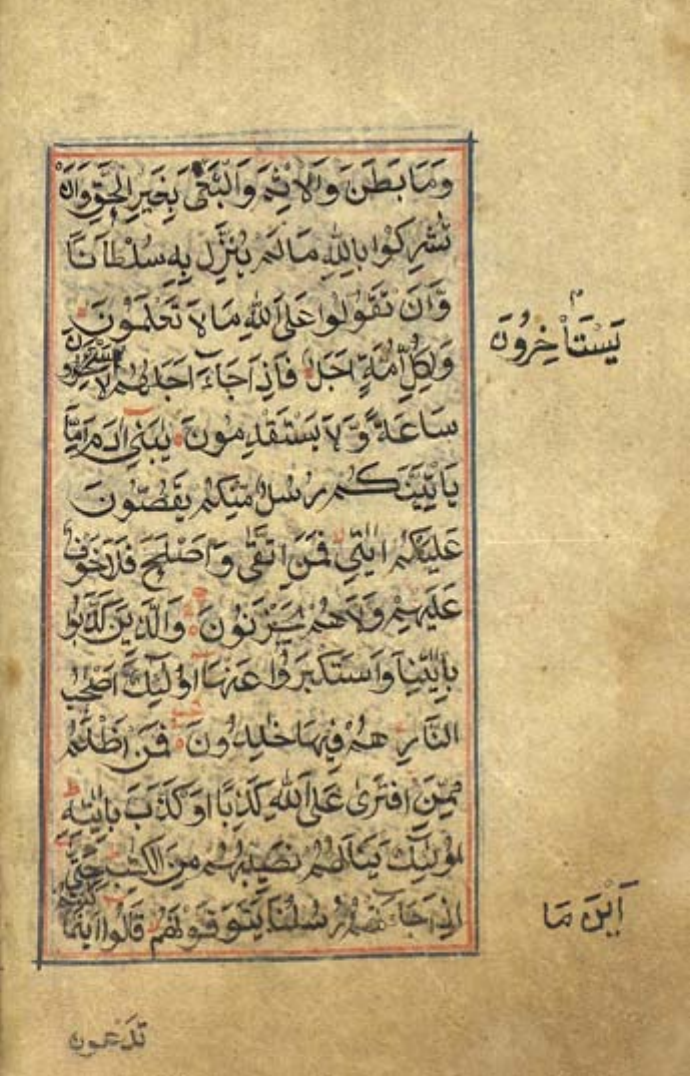 وَمَا بَطَنَ وَالْاِثْمَ وَالْبَغْیَ بِغَیْرِ الْحَقِّ وَاَنْ
تُشْرِكُوا بِاللّٰهِ مَا لَمْ یُنَزِّلْ بِهٖ سُلْطَانًا
وَّاَنْ تَقُوْلُوا عَلَی اللّٰهِ مَا لَا تَعْلَمُوْنَ
وَلِكُلِّ اُمَّةٍ اَجَلٌ فَاِذَا جَاءَ اَجَلُهُمْ لَا یَسْتَاْخِرُوْنَ
یَسْتَاْخِرُوْنَ
سَاعَةً وَّلَا یَسْتَقْدِمُوْنَ یٰبَنِیْ اٰدَمَ اِمَّا
یَاْتِیَنَّكُمْ رُسُلٌ مِّنْكُمْ یَقُصُّوْنَ
عَلَیْكُمْ اٰیٰتِیْ فَمَنِ اتَّقٰی وَاَصْلَحَ فَلَا خَوْفٌ
عَلَیْهِمْ وَلَا هُمْ یَحْزَنُوْنَ وَالَّذِیْنَ كَذَّبُوا
بِاٰیٰتِنَا وَاسْتَكْبَرُوْا عَنْهَا اُولٰٓئِكَ اَصْحٰبُ
النَّارِ هُمْ فِیْهَا خٰلِدُوْنَ فَمَنْ اَظْلَمُ
مِمَّنِ افْتَرٰی عَلَی اللّٰهِ كَذِبًا اَوْ كَذَّبَ بِاٰیٰتِهٖ
اُولٰٓئِكَ یَنَالُهُمْ نَصِیْبُهُمْ مِنَ الْكِتٰبِ حَتّٰی
اِذَا جَاءَتْهُمْ رُسُلُنَا یَتَوَفَّوْنَهُمْ قَالُوْا اَیْنَمَا كُنْتُمْ
اَیْنَ مَا
تَدْعُوْنَ